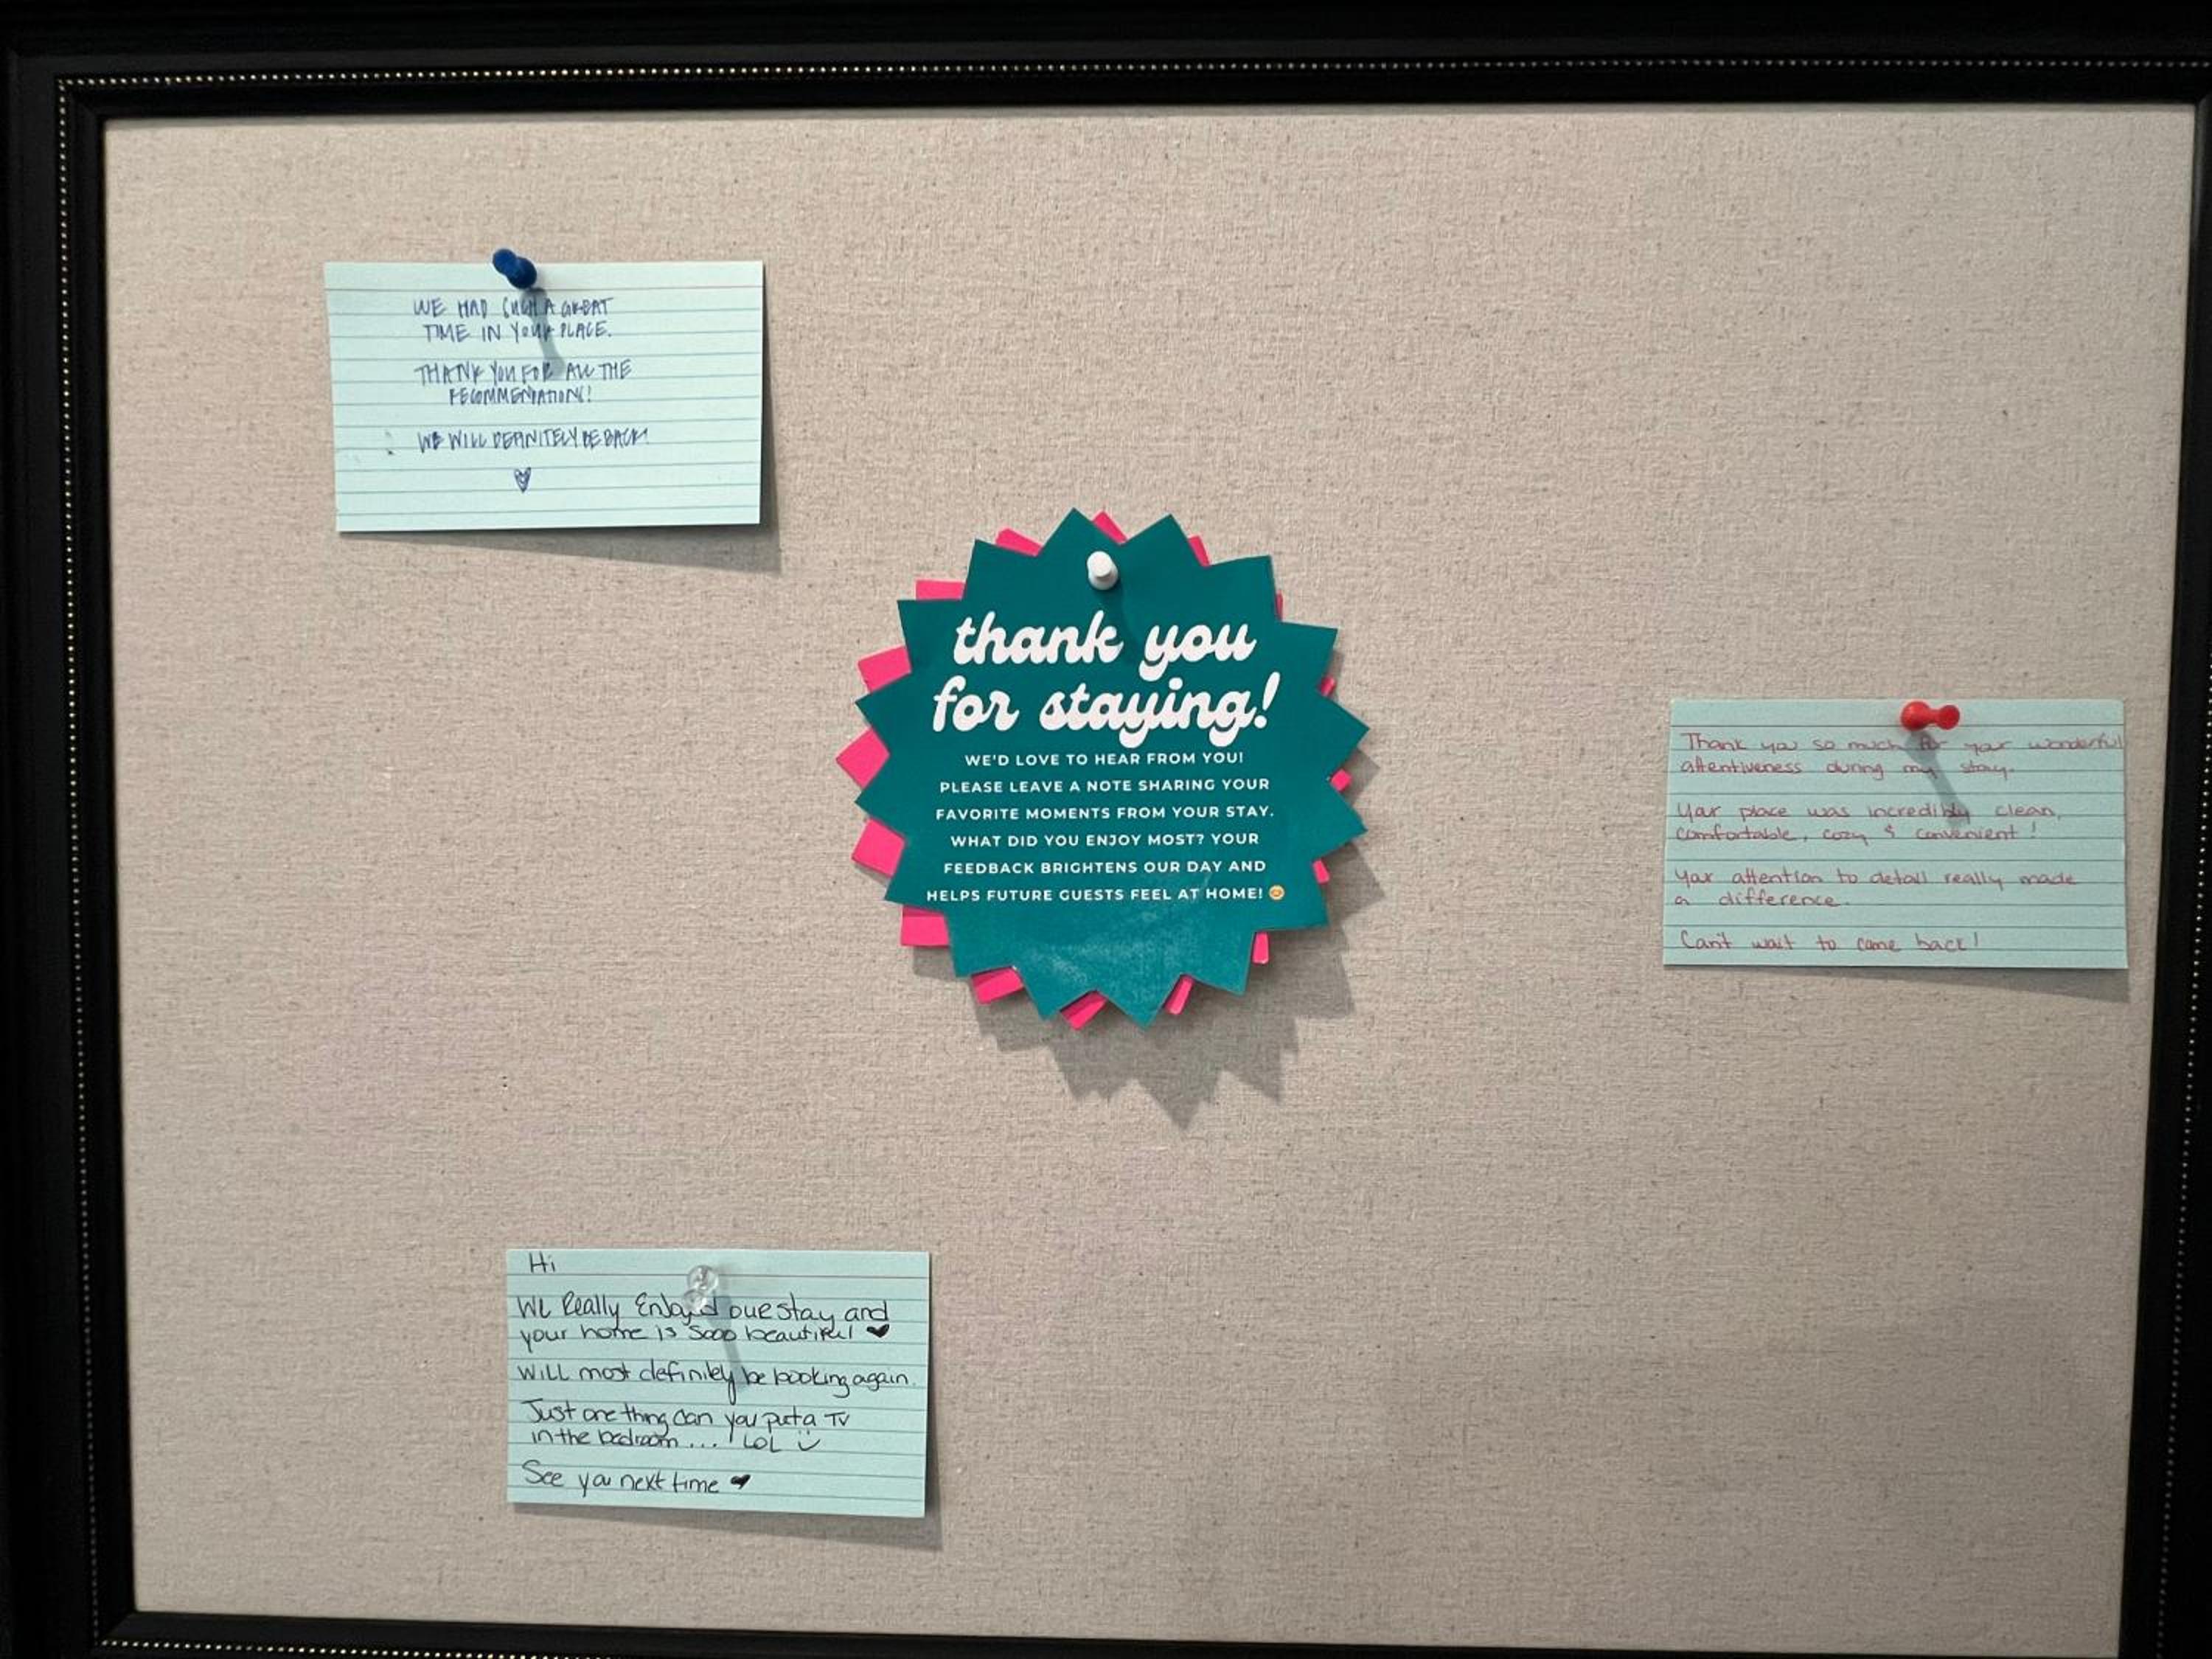 WE HAD SUCH A GREAT
TIME IN YOUR PLACE.
THANK YOU FOR ALL THE
RECOMMENDATIONS!
WE WILL DEFINITELY BE BACK!
thank you
for staying!
WE'D LOVE TO HEAR FROM YOU!
PLEASE LEAVE A NOTE SHARING YOUR
FAVORITE MOMENTS FROM YOUR STAY.
WHAT DID YOU ENJOY MOST? YOUR
FEEDBACK BRIGHTENS OUR DAY AND
HELPS FUTURE GUESTS FEEL AT HOME! 😊
Thank you so much for your wonderful
attentiveness during my stay.
Your place was incredibly clean,
comfortable, cozy & convenient!
Your attention to detail really made
a difference.
Can't wait to come back!
Hi
We Really Enjoyed our stay and
your home is sooo beautiful ♥
WILL most definitely be booking again.
Just one thing can you put a TV
in the bedroom... ! LOL ü
See you next time ♥